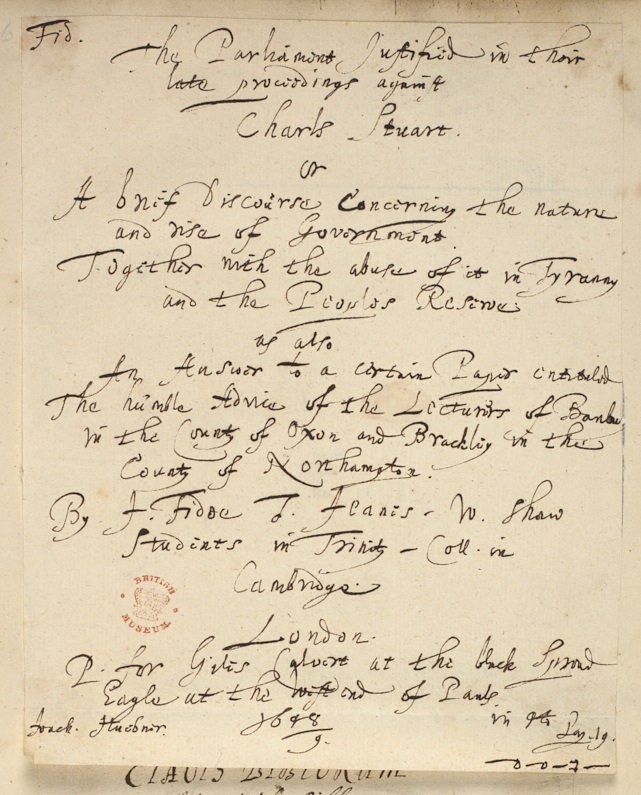 Fid.
The Parliament Justified in their
late proceedings against
Charls Stuart.
or
A brief Discourse Concerning the nature
and rise of Government.
Together with the abuse of it in Tyranny
and the Peoples Reserve.
as also
An Answer to a certain Paper entituled
The humble Advice of the Lecturers of Banbu
in the County of Oxon and Brackley in the
County of Northampton.
By J. Fidoe T. Jeanes - W. Shaw
Students in Trinity - Coll. in
Cambridge.
BRITISH
MUSEUM
London.
P. for Giles Calvert at the black Spread
Eagle at the west end of Pauls
Joach. Huebner.
1648
9.
in 4to
Pag. 19.
0-0-2-
CLAVIS